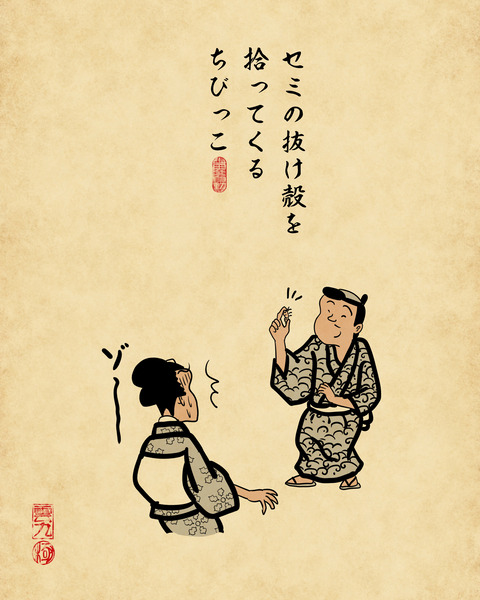 セミの抜け殻を
拾ってくる
ちびっこ
ゾ～